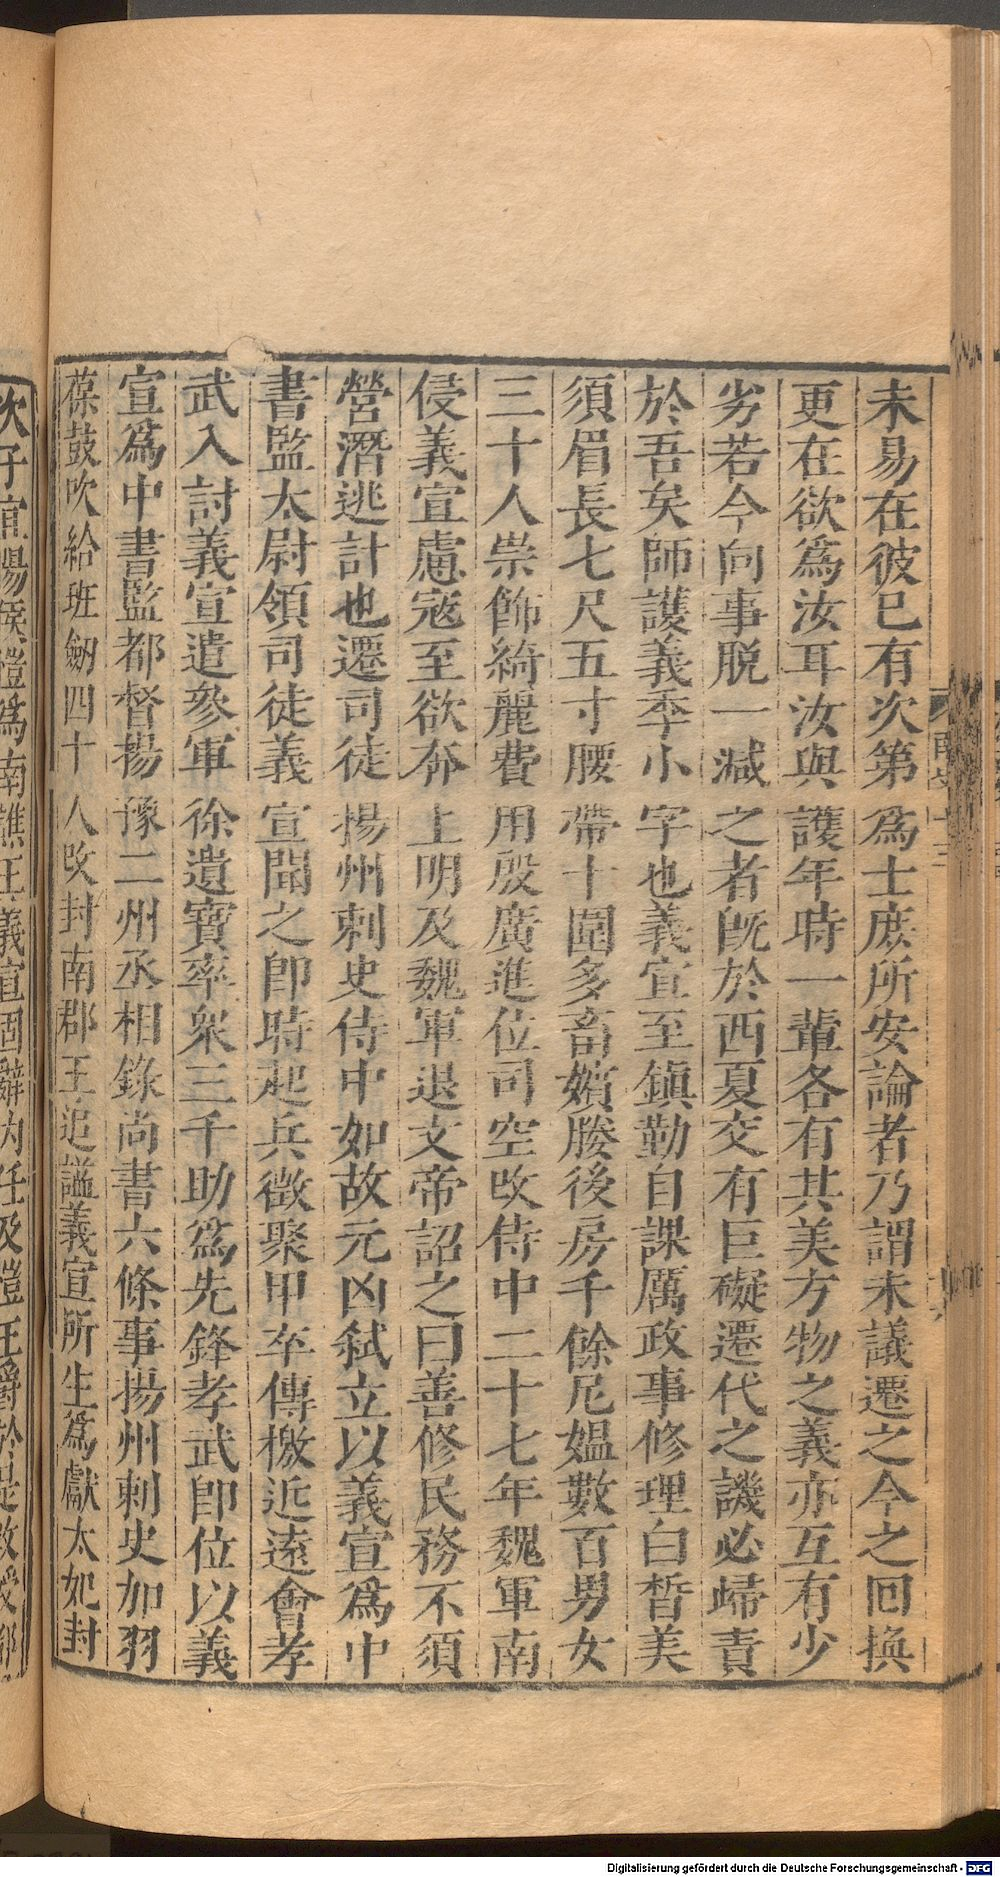 未易在彼已有次第爲士庶所安論者乃謂未議遷之今之回換
更在欲爲汝耳汝與護年時一輩各有其美方物之義亦互有少
劣若今向事脫一減之者旣於西夏交有巨礙遷代之譏必歸責
於吾矣師護義季小字也義宣至鎮勤自課厲政事修理白皙美
須眉長七尺五寸腰帶十圍多畜嬪媵後房千餘尼媼數百男女
三十人崇飾綺麗費用殷廣進位司空改侍中二十七年魏軍南
侵義宣慮寇至欲奔上明及魏軍退文帝詔之曰善修民務不須
營潛逃計也遷司徒揚州刺史侍中如故元凶弒立以義宣爲中
書監太尉領司徒義宣聞之卽時起兵徵聚甲卒傳檄近遠會孝
武入討義宣遣參軍徐遺寶率衆三千助爲先鋒孝武卽位以義
宣爲中書監都督揚豫二州丞相錄尚書六條事揚州刺史加羽
葆鼓吹給班劒四十人改封南郡王追諡義宣所生爲獻太妃封
次子宜陽侯愷爲南譙王義宣固辭內任及愷王爵於是改授都
Digitalisierung gefördert durch die Deutsche Forschungsgemeinschaft - DFG